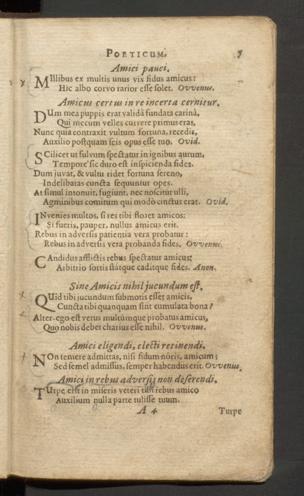 POETICUM. 7
Amici pauci.
MIllibus ex multis unus vix fidus amicus:
Hic albo corvo rarior esse solet. Ovvenus.
Amicus certus in re incerta cernitur.
DUm mea puppis erat validâ fundata carinâ,
Qui mecum velles currere primus eras,
Nunc quia contraxit vultum fortuna, recedis,
Auxilio postquam scis opus esse tuo. Ovid.
SCilicet ut fulvum spectatur in ignibus aurum,
Tempore sic duro est inspicienda fides.
Dum juvat, & vultu ridet fortuna sereno,
Indelibatas cuncta sequuntur opes.
At simul intonuit, fugiunt, nec noscitur ulli,
Agminibus comitum qui modò cinctus erat. Ovid.
INvenies multos, si res tibi floret amicos:
Si fueris, pauper, nullus amicus erit.
Rebus in adversis patientia vera probatur:
Rebus in adversis vera probanda fides. Ovvenus.
CAndidus afflictis rebus spectatus amicus;
Arbitrio sortis statque caditque fides. Anon.
Sine Amicis nihil jucundum est,
QUid tibi jucundum submotis esset amicis,
Cuncta tibi quanquam sint cumulata bona?
Alter-ego est verus multúmque probatus amicus,
Quo nobis debet charius esse nihil. Ovvenus.
Amici eligendi, electi retinendi.
NOn temere admittas, nisi fidum noris, amicum;
Sed semel admissus, semper habendus erit. Ovvenus.
Amici in rebus adversis non deserendi.
TUrpe est in miseris veteri rebus amico
Auxilium nulla parte tulisse tuum.
A 4 Turpe